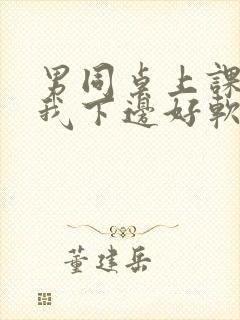 男同桌上課
我下邊好軟
董建岳